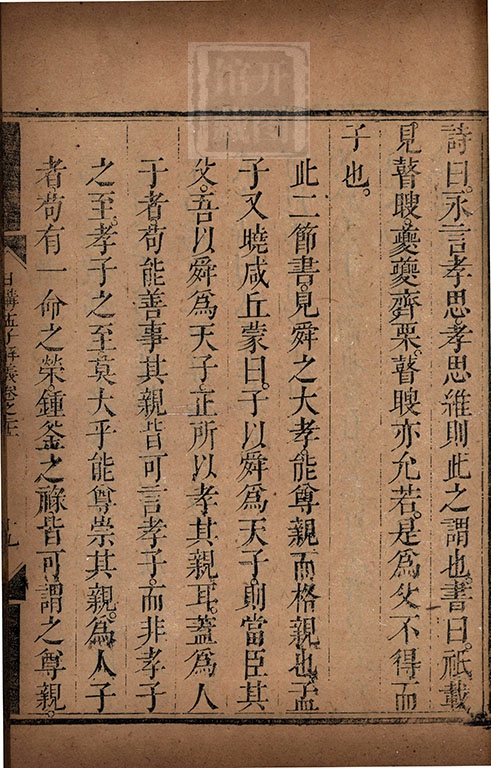 詩曰。永言孝思孝思維則此之謂也。書曰。祗載
見瞽瞍。夔夔齊栗。瞽瞍亦允若。是爲父不得而
子也。
此二節書。見舜之大孝。能尊親而格親也。孟
子又曉咸丘蒙曰。子以舜爲天子。則當臣其
父。吾以舜爲天子。正所以孝其親耳。蓋爲人
子者苟能善事其親。皆可言孝子。而非孝子
之至。孝子之至。莫大乎能尊崇其親。爲人子
者。苟有一命之榮。鍾釜之祿。皆可謂之尊親。
日講孟子解義卷之